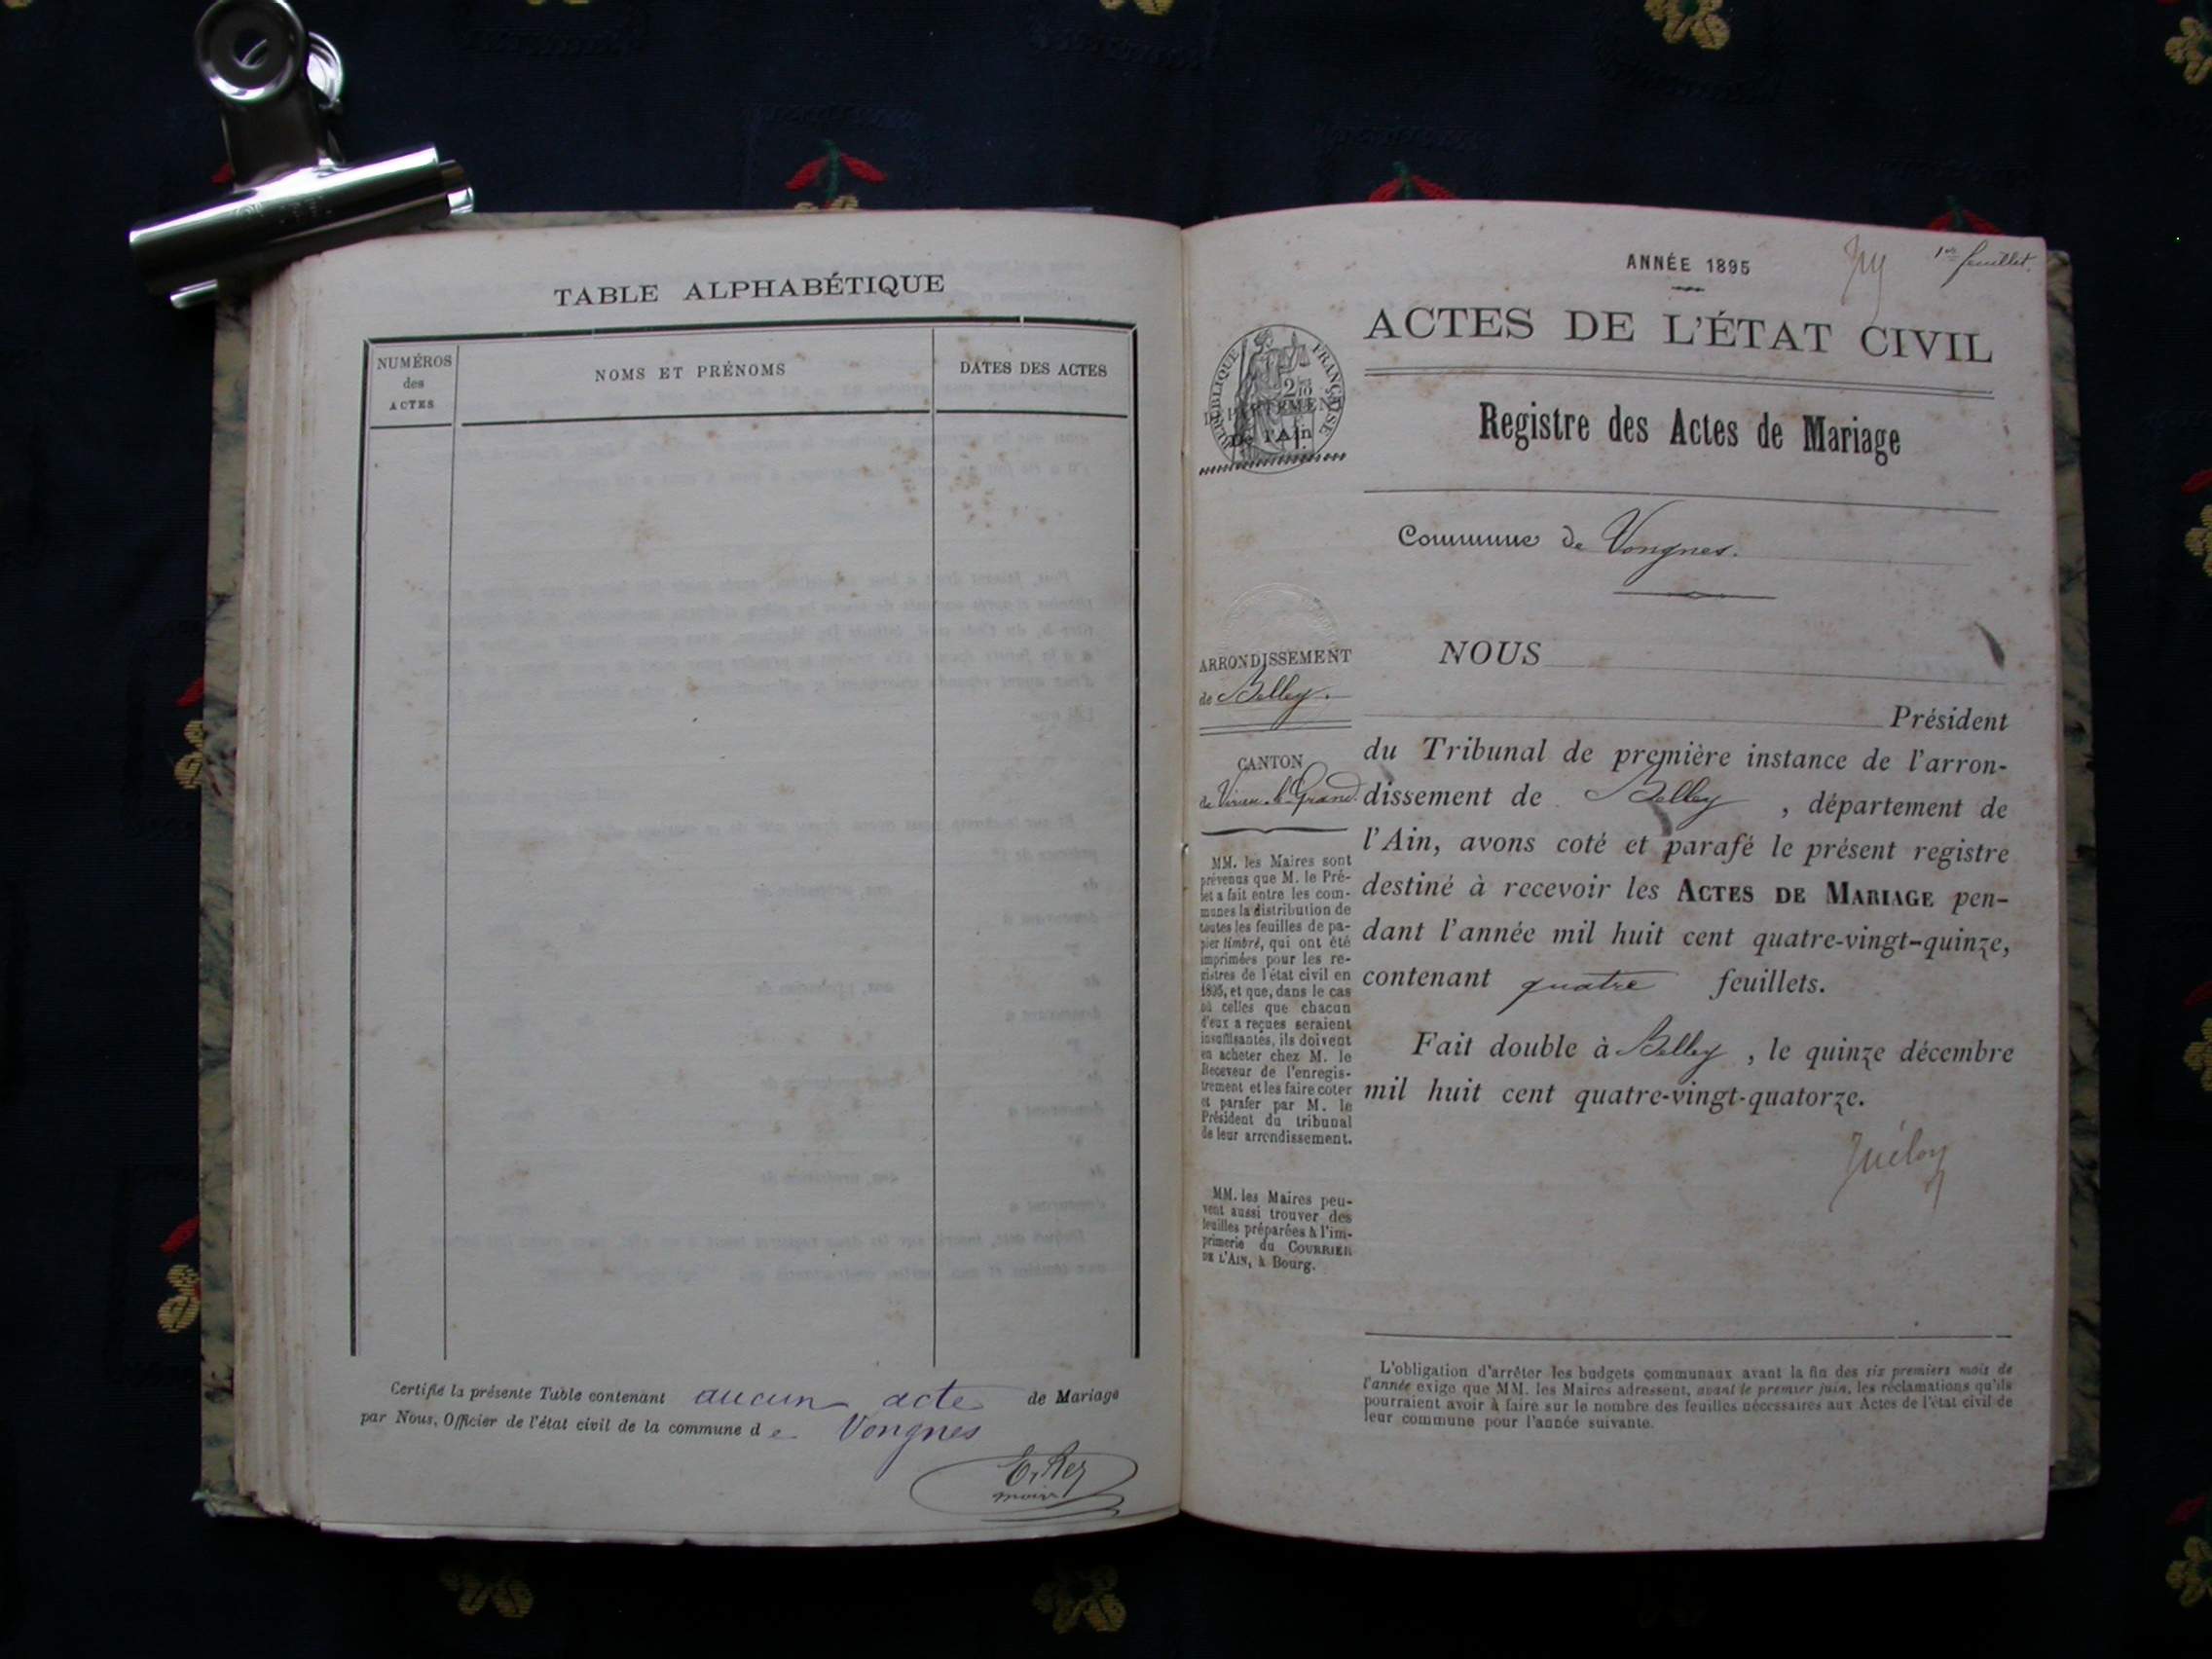 TABLE ALPHABÉTIQUE
NUMÉROS
des
ACTES
NOMS ET PRÉNOMS
DATES DES ACTES
Certifié la présente Table contenant aucun acte de Mariage
par Nous, Officier de l'état civil de la commune de Vongnes
maire
1er feuillet.
ANNÉE 1895
ACTES DE L'ÉTAT CIVIL
RÉPUBLIQUE FRANÇAISE
DÉPARTEMENT
De l'Ain
Registre des Actes de Mariage
Commune de Vongnes.
ARRONDISSEMENT
de Belley.
CANTON
de Virieu-le-Grand
MM. les Maires sont
prévenus que M. le Pré-
fet a fait entre les com-
munes la distribution de
toutes les feuilles de pa-
pier timbré, qui ont été
imprimées pour les re-
gistres de l'état civil en
1895, et que, dans le cas
où celles que chacun
d'eux a reçues seraient
insuffisantes, ils doivent
en acheter chez M. le
Receveur de l'enregis-
trement et les faire coter
et parafer par M. le
Président du tribunal
de leur arrondissement.
MM. les Maires peu-
vent aussi trouver des
feuilles préparées à l'im-
primerie du COURRIER
DE L'AIN, à Bourg.
NOUS
Président
du Tribunal de première instance de l'arron-
dissement de Belley, département de
l'Ain, avons coté et parafé le présent registre
destiné à recevoir les ACTES DE MARIAGE pen-
dant l'année mil huit cent quatre-vingt-quinze,
contenant quatre feuillets.
Fait double à Belley, le quinze décembre
mil huit cent quatre-vingt-quatorze.
L'obligation d'arrêter les budgets communaux avant la fin des six premiers mois de
l'année exige que MM. les Maires adressent, avant le premier juin, les réclamations qu'ils
pourraient avoir à faire sur le nombre des feuilles nécessaires aux Actes de l'état civil de
leur commune pour l'année suivante.